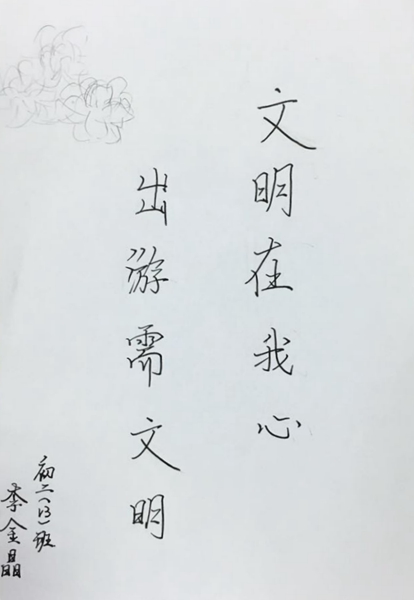 文明在我心
出游需文明
初二(13)班
李金晶